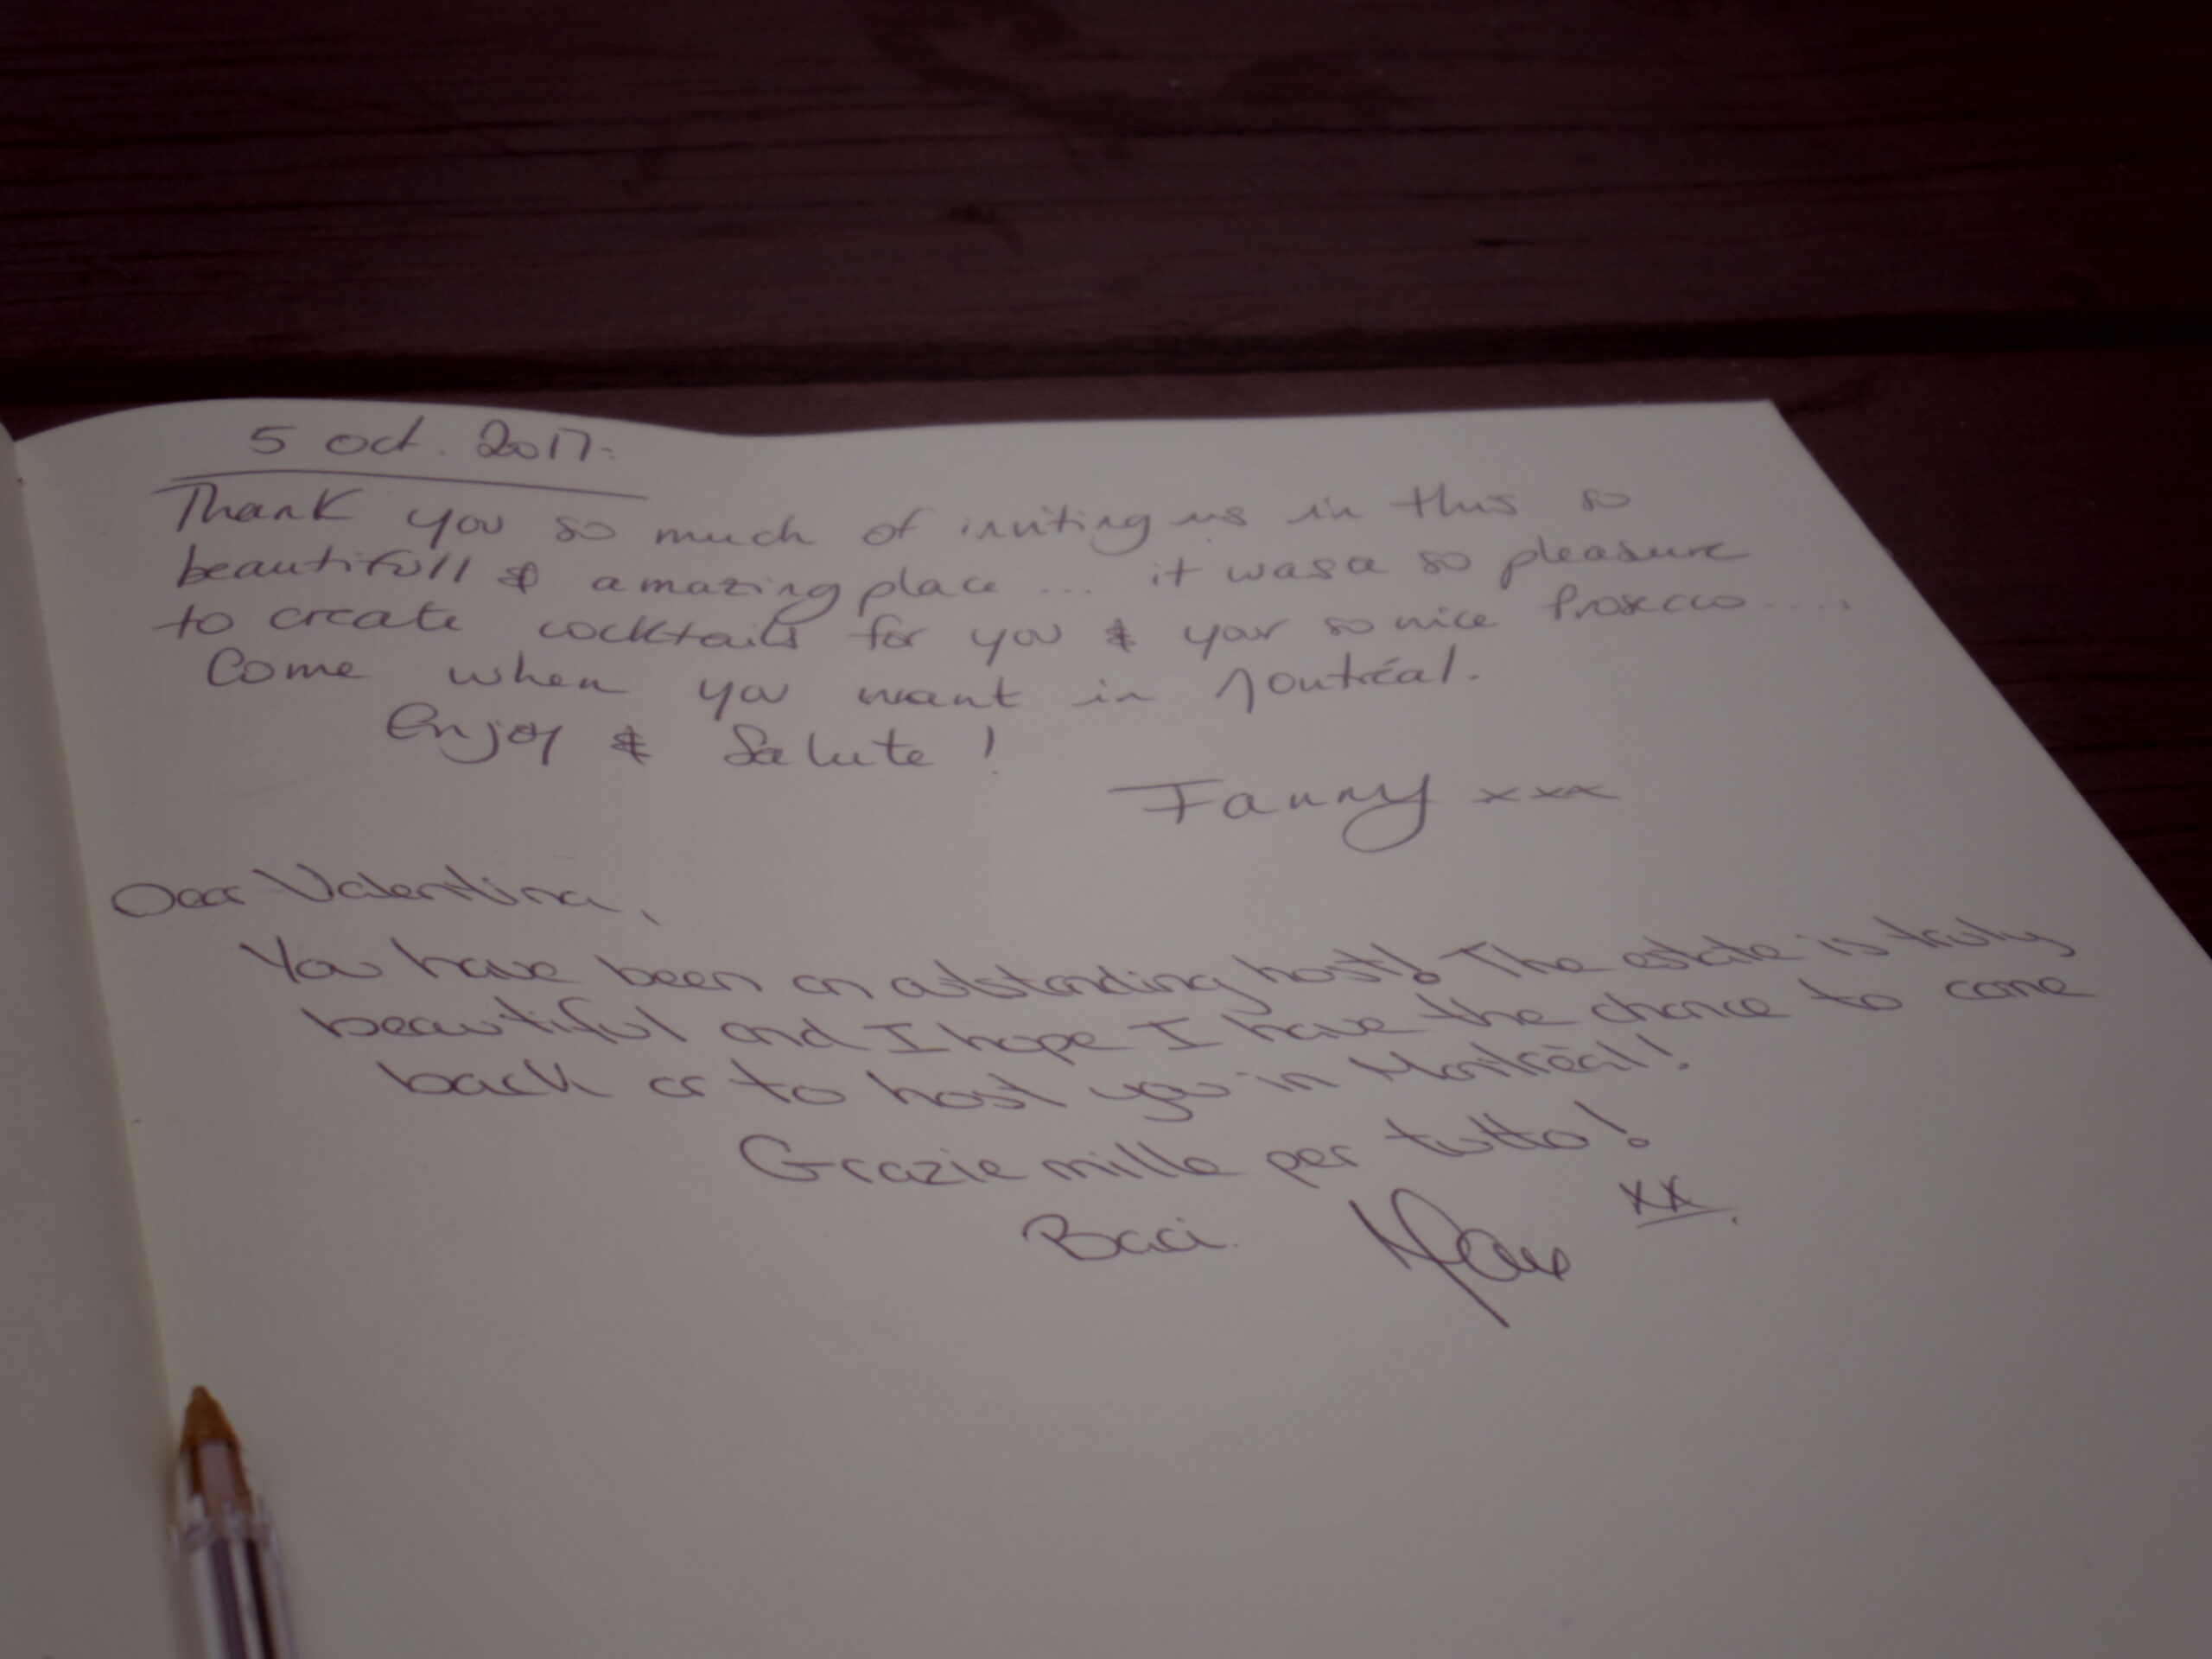 5 Oct. 2017.
Thank you so much of inviting us in this so
beautifull & amazing place ... it was a so pleasure
to create cocktails for you & your so nice Prosecco.....
Come when you want in Montréal.
Enjoy & Salute !
Fanny xxx
Dear Valentina,
You have been an outstanding host! The estate is truly
beautiful and I hope I have the chance to come
back or to host you in Montréal!
Grazie mille per tutto!
Baci. xx.